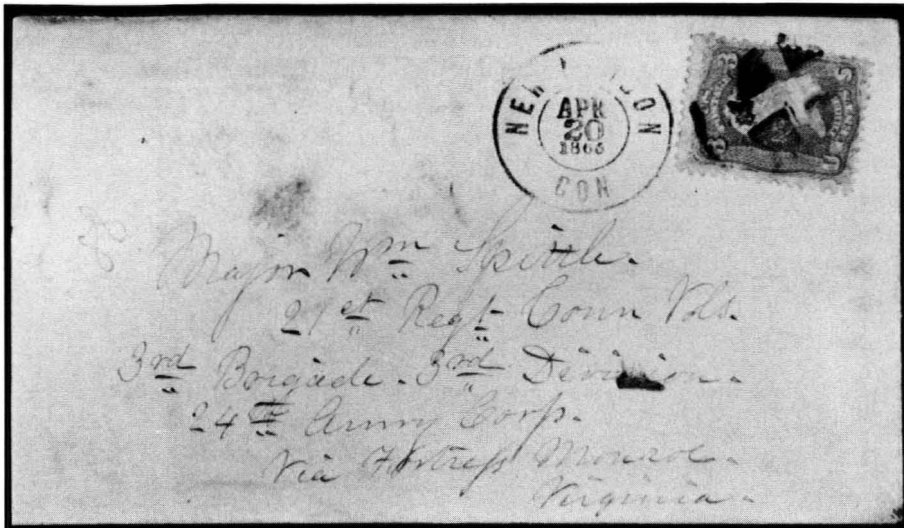 NEW LONDON
APR
20
1865
CON
Major Wm Spittle.
21st Regt Conn Vols.
3rd Brigade. 3rd Division.
24th Army Corp.
Via Fortress Monroe.
Virginia.